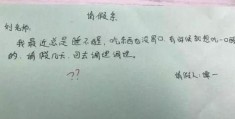 请假条
刘老师:
我最近总是睡不醒,吃东西也没胃口,有时候就想吐一口
的,请假几天,回去调理调理。
??
请假人: